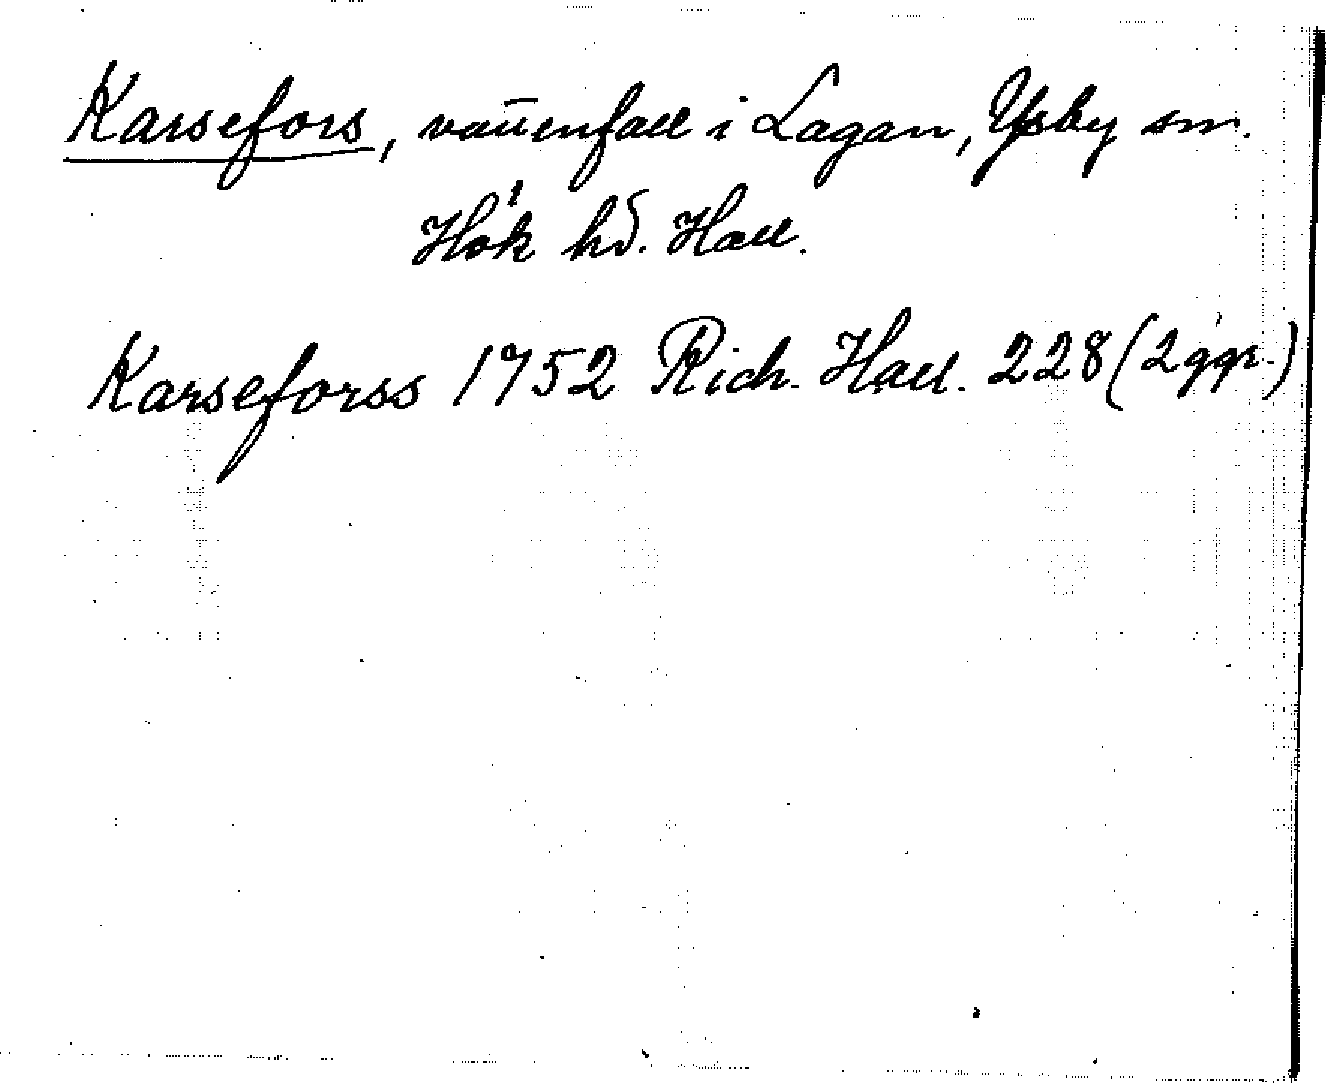 Karsefors, vattenfall i Lagan, Ysby sn.
Hök hd. Hall.
Karseforss 1752 Rich. Hall. 228 (2 ggr.)